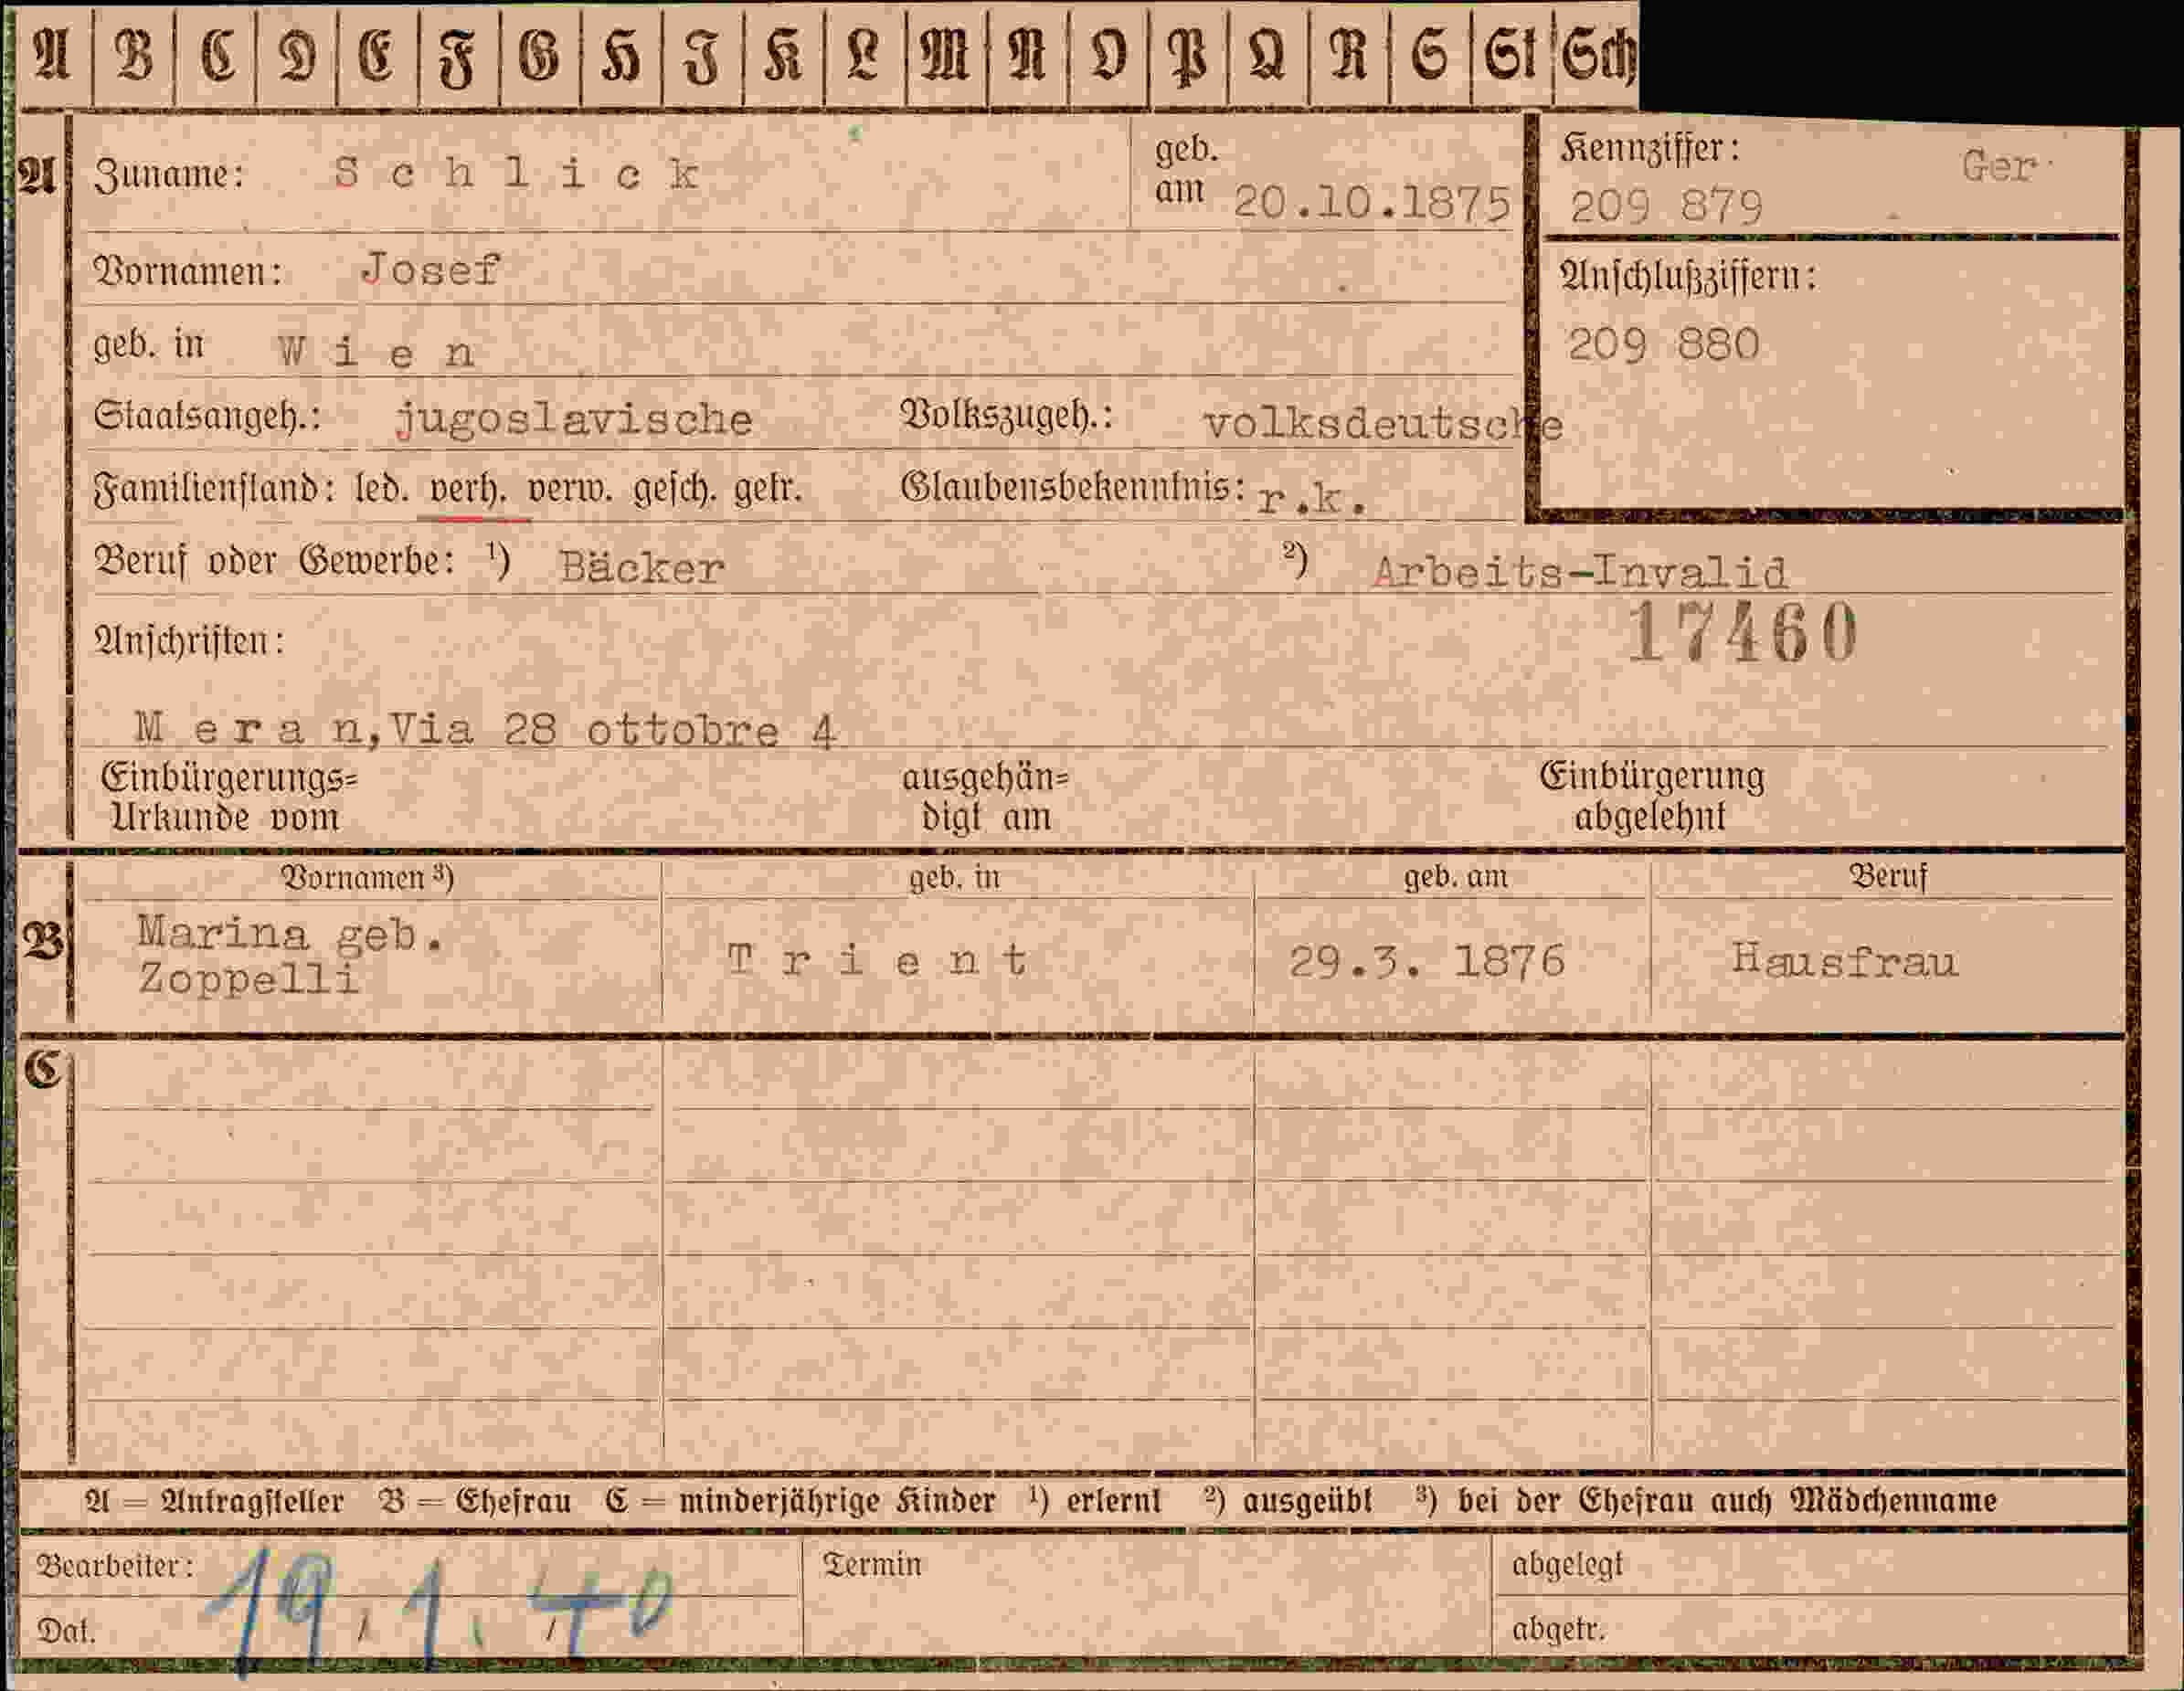 A B C D E F G H I K L M N O P Q R S St Sch
A Zuname: Schlick geb. am 20.10.1875
Kennziffer: Ger
209 879
Vornamen: Josef
Anschlußziffern:
209 880
geb. in Wien
Staatsangeh.: jugoslavische Volkszugeh.: volksdeutsche
Familienstand: led. verh. verw. gesch. getr. Glaubensbekenntnis: r.k.
Beruf oder Gewerbe: ¹) Bäcker ²) Arbeits-Invalid
Anschriften: 17460
Meran, Via 28 ottobre 4
Einbürgerungs= ausgehän= Einbürgerung
Urkunde vom digt am abgelehnt
Vornamen ³) geb. in geb. am Beruf
B Marina geb. Trient 29.3. 1876 Hausfrau
Zoppelli
C
A = Antragsteller B = Ehefrau C = minderjährige Kinder ¹) erlernt ²) ausgeübt ³) bei der Ehefrau auch Mädchenname
Bearbeiter: Termin abgelegt
Dat. 19.1.40 abgetr.